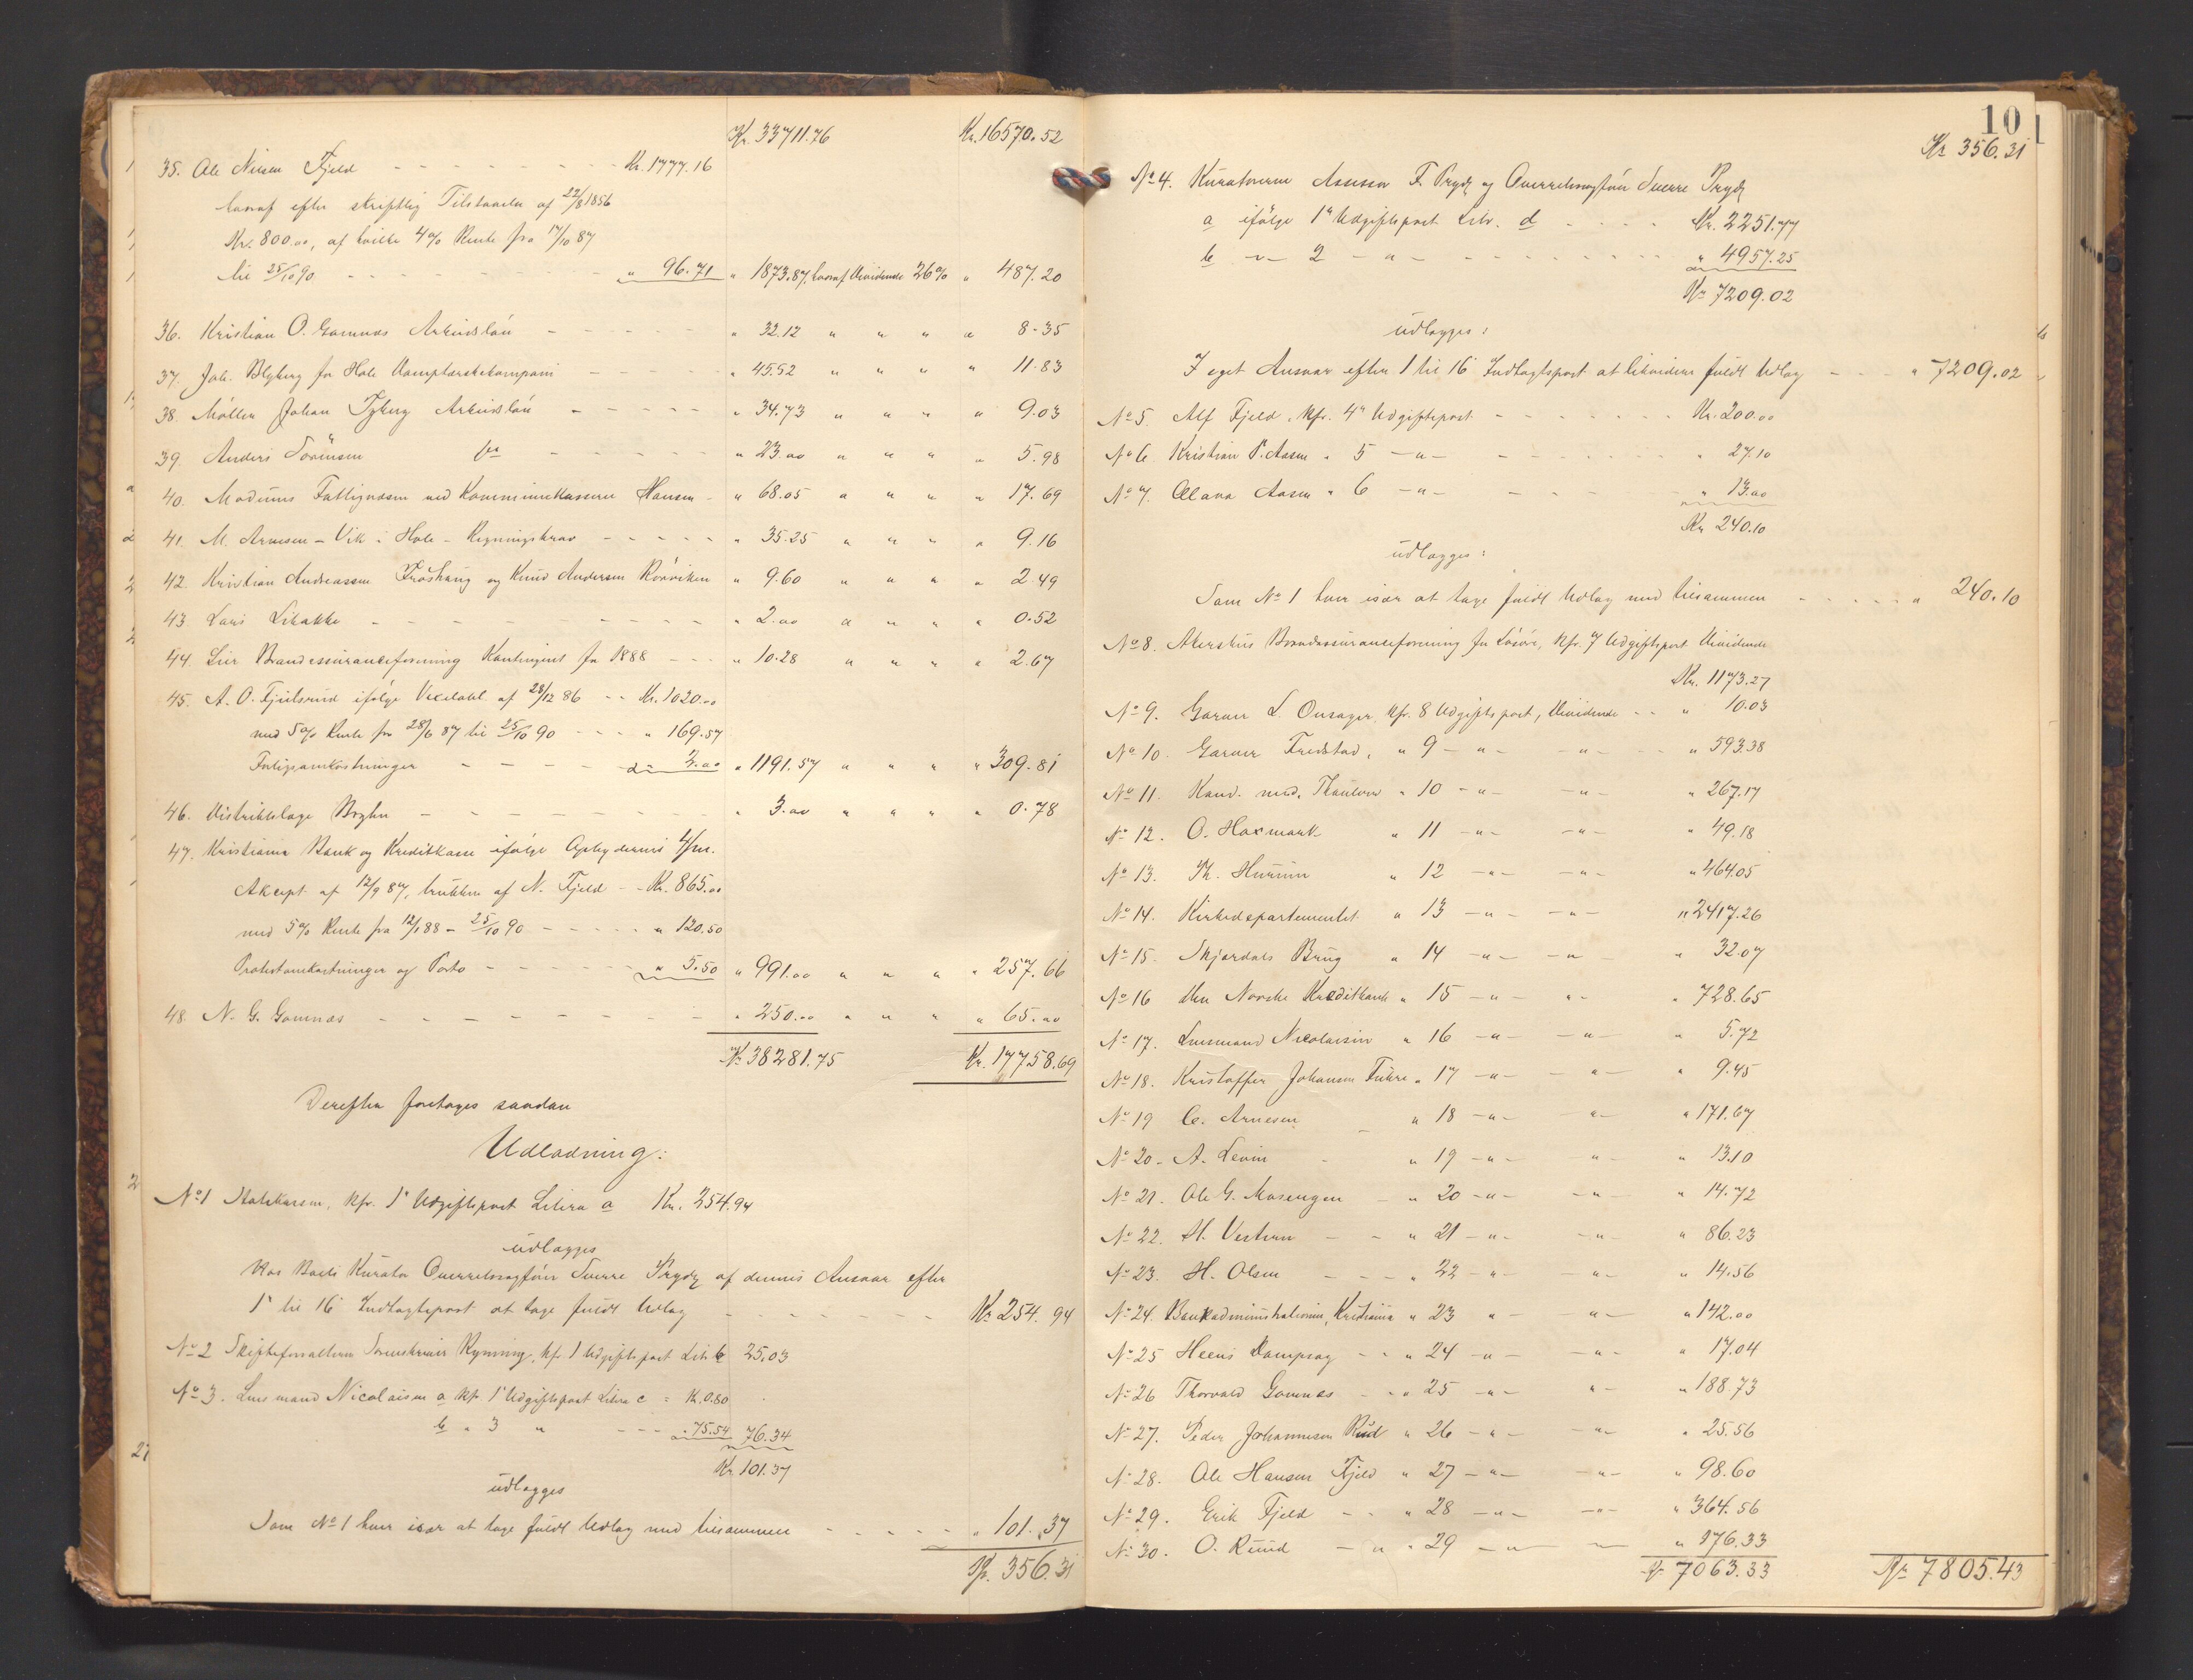 Kr. 33711.76 Kr. 16570.52
35. Ole Nilsen Fjeld - - - - Kr. 1777.16
hvoraf efter skriftlig Tilstaaelse af 22/8 1856
Kr. 800.00, af hvilke 4% Rente fra 17/10 87
til 25/10 90 - - - - " 96.71 " 1873.87, hvoraf Dividende 26% " 487.20
36. Kristian O. Gomnæs Arbeidsløn - - " 32.12 " " " " 8.35
37. Joh. Blyberg for Hole Damptærskekompani - - " 45.52 " " " " 11.83
38. Møller Johan Tyberg Arbeidsløn - - " 34.73 " " " " 9.03
39. Anders Sørensen do - - " 23.00 " " " " 5.98
40. Modums Fattigvæsen ved Kommunekasserer Hansen - " 68.05 " " " " 17.69
41. M. Arnesen - Vik i Hole - Regningskrav - - " 35.25 " " " " 9.16
42. Kristian Andreassen Frøshaug og Knud Andersen Rørviken " 9.60 " " " " 2.49
43. Lars Libakke - - - - " 2.00 " " " " 0.52
44. Lier Brandassuranceforening Kontingent for 1888 - - " 10.28 " " " " 2.67
45. A. O. Fjulsrud ifølge Vexelobl. af 28/12 86 - - Kr. 1020.00
med 5% Rente fra 28/6 87 til 25/10 90 - - - " 169.57
Forligsomkostninger - - - " 2.00 " 1191.57 " " " " 309.81
46. Distriktslæge Bryhn - - - - " 3.00 " " " " 0.78
47. Kristiania Bank og Kreditkasse ifølge
Akcept af 12/9 87, trukken af N. Fjeld - - Kr. 865.00
med 5% Rente fra 12/1 88 - 25/10 90 - - - " 120.50
Protestomkostninger og Porto - - - " 5.50 " 991.00 " " " " 257.66
48. N. G. Gomnæs - - - - " 250.00 " " " " 65.00
Kr. 38281.75 Kr. 17758.69
Derefter foretages saadan
Udlodning:
No 1 Statskassen, kfr. 1ste Udgiftspost Litera a Kr. 254.94
udlægges
hos Boets Kurator Overretssagfører Sverre Prydz af dennes Ansvar efter
1ste til 16de Indtægtspost at tage fuldt Udlæg - - - Kr. 254.94
No 2 Skifteforvalteren Sorenskriver Rynning, kfr. 1 Udgiftspost Litr. b 25.03
No 3. Lensmand Nicolaisen a kfr. 1ste Udgiftspost Litera c = Kr. 0.80
b " 3 " - - - " 75.54 76.34
Kr. 101.37
udlægges
Som No 1 hver især at tage fuldt Udlæg med tilsammen - - - " 101.37
Kr. 356.31
10
Kr 356.31
No 4. Kuratorerne Assessor F. Prydz og Overretssagfører Sverre Prydz
a ifølge 1ste Udgiftspost Litr. d - - - Kr. 2251.77
b - " - 2 - " - - - - " 4957.25
Kr 7209.02
udlægges:
I eget Ansvar efter 1 til 16de Indtægtspost at likvidere fuldt Udlæg - - - " 7209.02
No 5. Alf Fjeld, kfr. 4de Udgiftspost - - - Kr. 200.00
No 6. Kristian P. Aasen " 5 - " - - - - " 27.10
No 7. Olava Aasen " 6 - " - - - - " 13.00
Kr 240.10
udlægges:
Som No 1 hver især at tage fuldt Udlæg med tilsammen - - - " 240.10
No 8. Akershus Brandassuranceforening for Løsøre, kfr. 7 Udgiftspost Dividende
Kr. 1173.27
No 9. Garver L. Onsager, kfr. 8 Udgiftspost, Dividende - - " 10.03
No 10. Garver Fredstad, " 9 - " - - " - - - " 593.38
No 11. Kand. med. Thaulow " 10 - " - - " - " 267.17
No 12. O. Haxmark " 11 - " - - " - " 49.18
No 13. Th. Hurum " 12 - " - - " - " 464.05
No 14. Kirkedepartementet " 13 - " - - " - " 2417.26
No 15. Skjærdals Brug " 14 - " - - " - " 32.07
No 16 Den Norske Kreditbank " 15 - " - " - " 728.65
No 17. Lensmand Nicolaisen " 16 - " - - " - " 5.72
No 18. Kristoffer Johansen Fuhre " 17 - " - - " - " 9.45
No 19 C. Arnesen " 18 - " - " - " 171.67
No 20. A. Levin - " 19 - " - " - " 13.10
No 21. Ole G. Mosengen - " 20 - " - - " - " 14.72
No 22. H. Vestern - - " 21 - " - - " - " 86.23
No 23. H. Olsen - - - " 22 - " - - " - " 14.56
No 24. Bankadministrationen, Kristiania " 23 " - " - " 142.00
No 25 Heens Dampsag - - " 24 - " - - " - " 17.04
No 26 Thorvald Gomnæs - - " 25 - " - " - " 188.73
No 27. Peder Johannesen Rud " 26 - " - - " - " 25.56
No 28. Ole Hansen Fjeld " 27 - " - - " - " 98.60
No 29. Erik Fjeld - - " 28 - " - - " - " 364.56
No 30. O. Ruud - " " 29 - " - - " 176.33
Kr 7063.33 Kr 7805.43